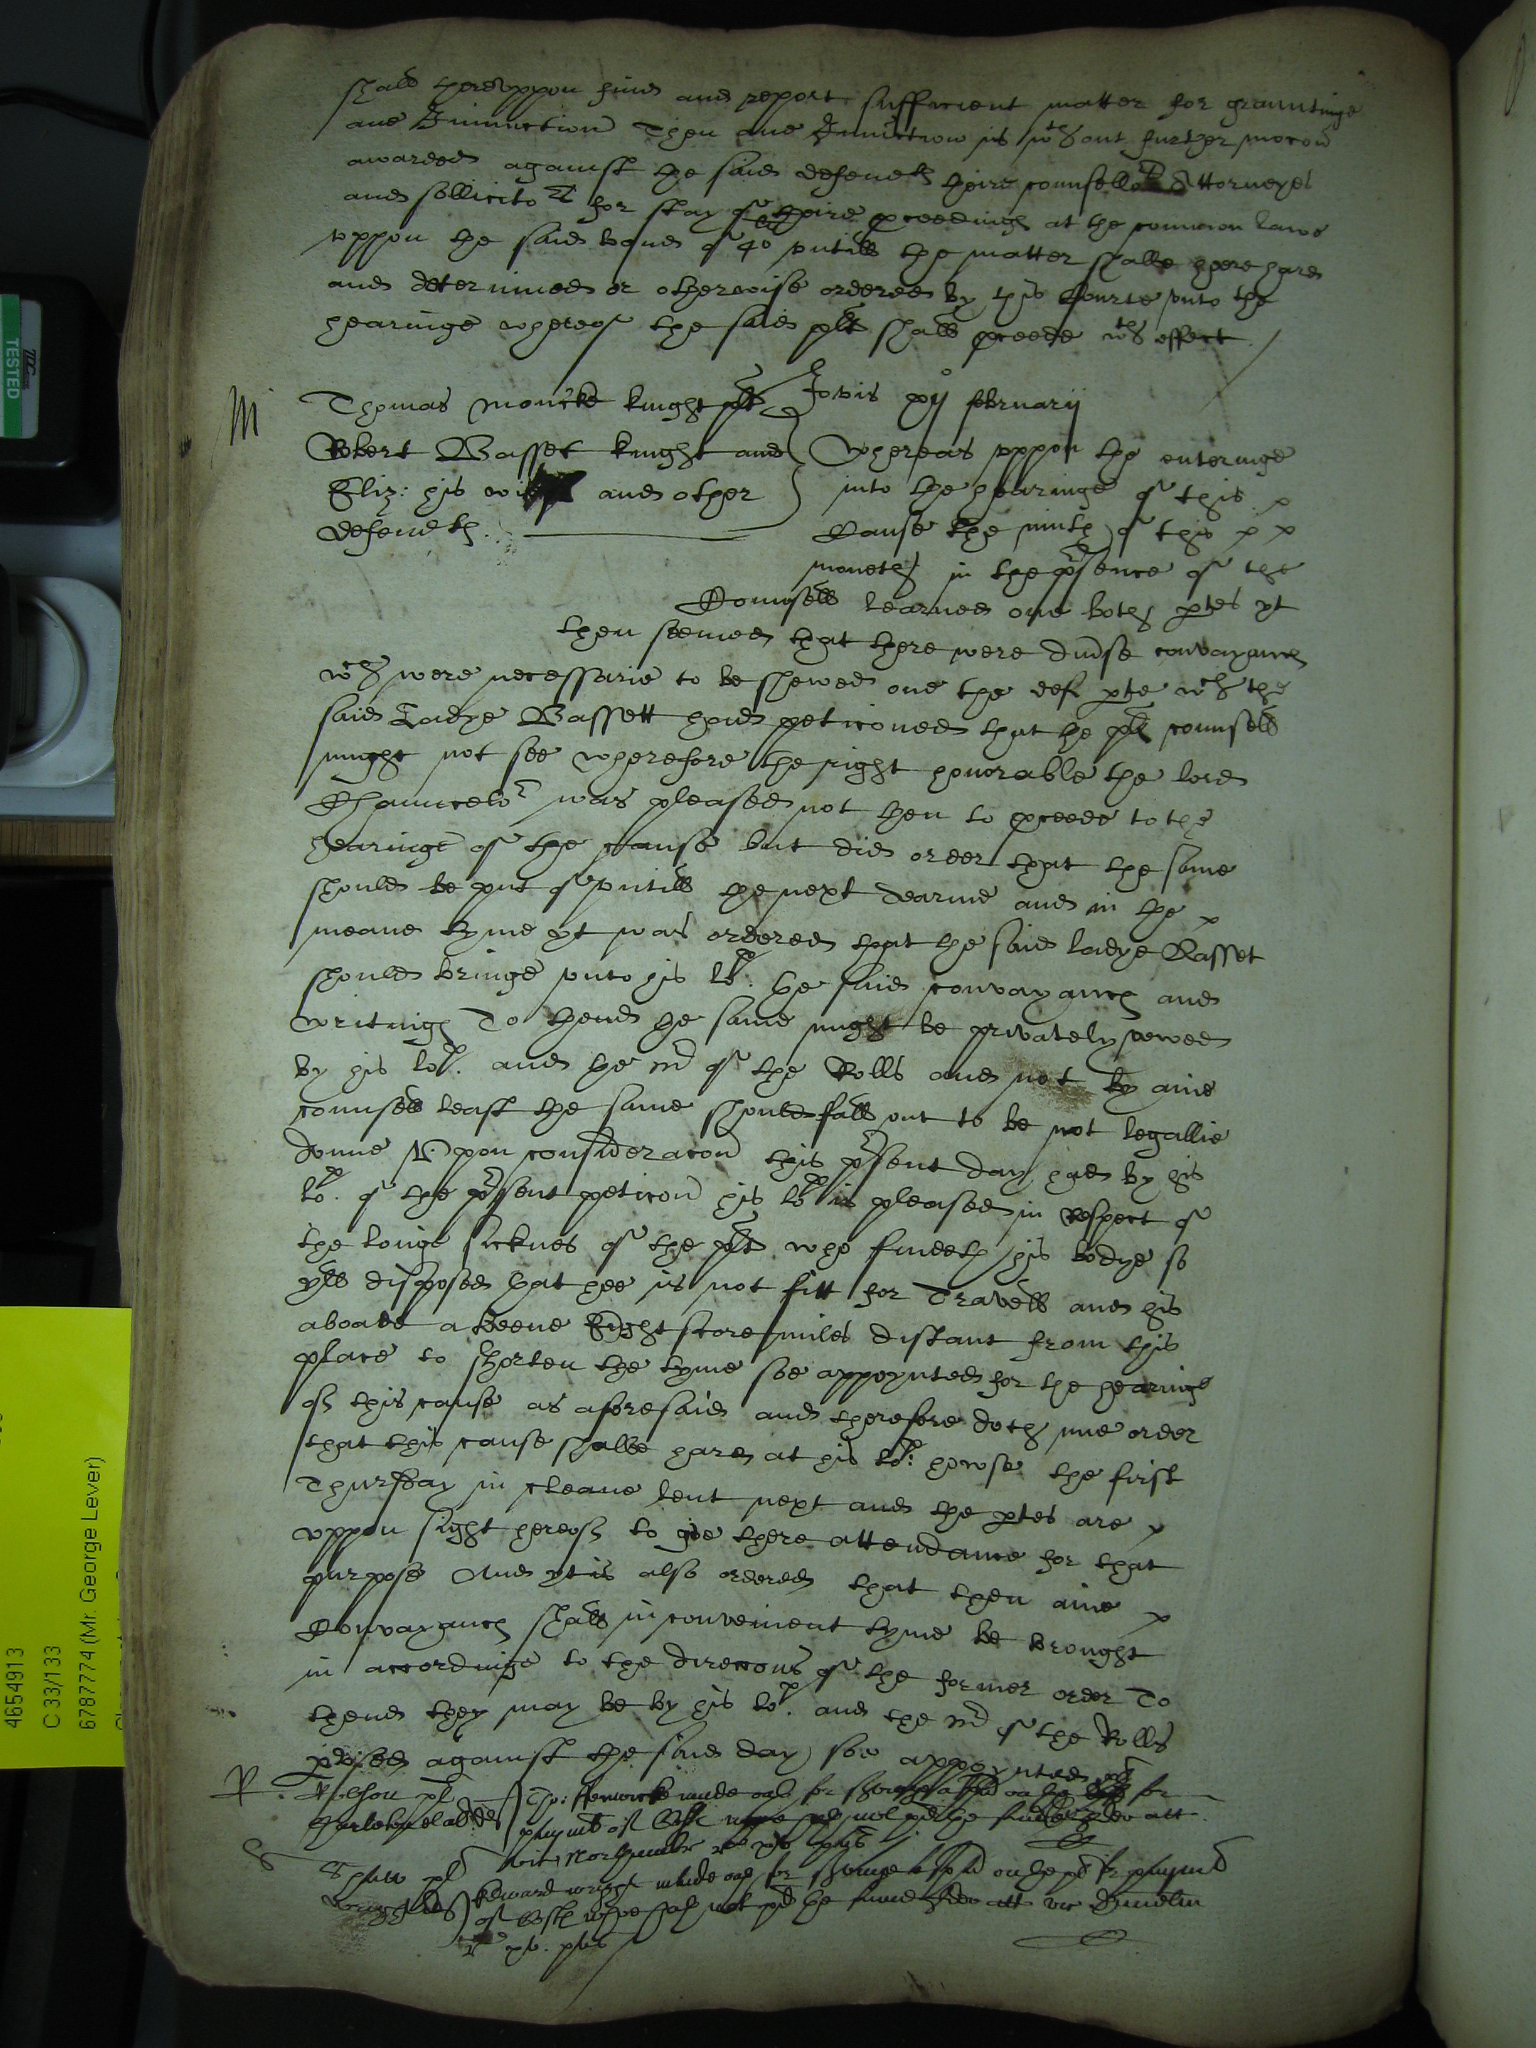 shall therevppon finde and report sufficient matter for grauntinge
ane Iniunction Then ane Iniunction is wthout further mocon
awarded against the said defendts their counsellors Attorneyes
and sollicitors for stay of their proceedings at the common lawe
vppon the said bond of 40 vntill the matter shalbe here hard
and determined or otherwise ordered by this Courte vnto the
hearinge whereof the said plt shall proceede wth effect
M
Thomas Moncke knight plt
Robert Basset knight and
Eliz: his wife and other
defendts
Jovis xij februarij
Whereas vppon the enteringe
into the hearinge of this
Cause the ninth of this
moneth in the presence of the
Counsell learned one both ptes yt
then seemed that there were diuerse convayances
wch were necessarie to be shewed one the def pte wch the
said Ladye Bassett hath peticoned that the plts counsell
might not see wherefore the right honorable the lord
Chauncelor was pleased not then to proceede to the
hearinge of the cause but did order that the same
should be put of vntill the next Tearme and in the
meane tyme yt was ordered that the said ladye Basset
should bringe vnto his lop: the said convayances and
writings To thend the same might be privately vewed
by his lop. and the Mr of the Rolls and not by anie
counsell least the same should fall out to be not legallie
donne Vpon consideracon this present day had by his
lop. of the present peticon his lop is pleased in respect of
the longe sicknes of the plt who findeth his bodye so
yll disposed that hee is not fitt for Travell and his
aboade a beene Eight score miles distant from this
place to shorten the tyme soe appoynted for the hearinge
of this cause as aforesaid and therefore doth nue order
that this cause shalbe hard at his lops: howse the first
Thursday in cleane lent next and the ptes are
vppon sight hereof to give there attendance for that
purpose And yt is also ordered that then anie
Convayances shall in convenient tyme be brought
in accordinge to the direccons of the former order To
thend they may be by his lop. and the Mr of the Rolls
pvsed against the said day soe appoynted
pl
Tho: Fenwicke made oath for
paymt of Costs
pl
Edward Wright made oath for
of Costs
4654913
C 33/133
6787774 (Mr. George Lever)
TESTED